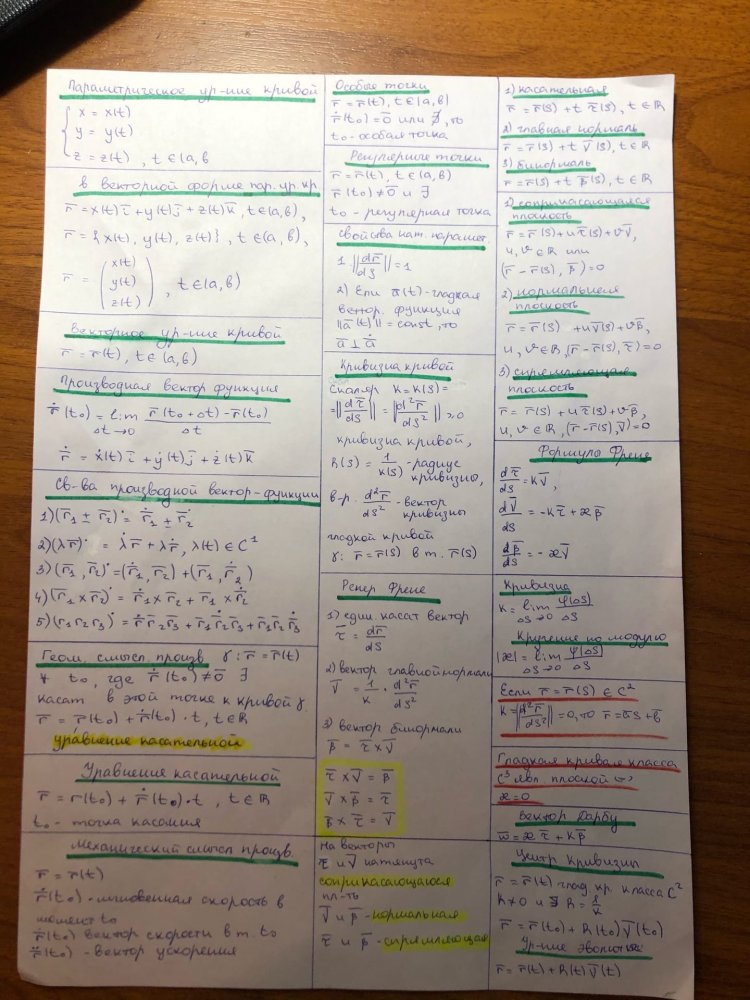 Параметрическое ур-ние кривой
{ x = x(t)
y = y(t)
z = z(t) , t ∈ (a, b
в векторной форме пар. ур. кр
r̅ = x(t) i̅ + y(t) j̅ + z(t) k̅, t ∈ (a, b),
r̅ = { x(t), y(t), z(t) }, t ∈ (a, b),
r̅ = ( x(t)
y(t)
z(t) ) , t ∈ (a, b)
Векторное ур-ние кривой
r̅ = r̅(t), t ∈ (a, b)
Производная вектор функция
ṙ̅(t₀) = lim r̅(t₀ + Δt) - r̅(t₀)
Δt→0 Δt
ṙ̅ = ẋ(t) i̅ + ẏ(t) j̅ + ż(t) k̅
Св-ва производной вектор-функции
1) (r̅₁ ± r̅₂)˙ = ṙ̅₁ ± ṙ̅₂
2) (λr̅)˙ = λ̇ r̅ + λ ṙ̅, λ(t) ∈ C¹
3) (r̅₁, r̅₂)˙ = (ṙ̅₁, r̅₂) + (r̅₁, ṙ̅₂)
4) (r̅₁ × r̅₂)˙ = ṙ̅₁ × r̅₂ + r̅₁ × ṙ̅₂
5) (r₁ r₂ r₃)˙ = ṙ̅ r̅₂ r̅₃ + r̅₁ ṙ̅₂ r̅₃ + r̅₁ r̅₂ ṙ̅₃
Геом. смысл произв. γ: r̅ = r̅(t)
∀ t₀, где ṙ̅(t₀) ≠ 0̅ ∃
касат в этой точке к кривой γ
r̅ = r̅(t₀) + ṙ̅(t₀) · t, t ∈ ℝ
уравнение касательной
Уравнения касательной
r̅ = r(t₀) + ṙ̅(t₀) · t , t ∈ ℝ
t₀ - точка касания
Механический смысл произв.
r̅ = r̅(t)
ṙ̅(t₀) - мгновенная скорость в
момент t₀
ṙ̅(t₀) вектор скорости в т. t₀
r̈̅(t₀) - вектор ускорения
Особые точки
r̅ = r̅(t), t ∈ (a, b)
ṙ̅(t₀) = 0̅ или ∄, то
t₀ - особая точка
Регулярные точки
r̅ = r̅(t), t ∈ (a, b)
ṙ̅(t₀) ≠ 0̅ и ∃
t₀ - регулярная точка
Свойства нат. парамет.
1. ‖dr̅/ds‖ = 1
2) Если a̅(t) - гладкая
вектор. функция
‖a̅(t)‖ = const, то
a̅ ⊥ ȧ̅
Кривизна кривой
Скаляр k = k(s) =
= ‖dτ̅/ds‖ = ‖d²r̅/ds²‖ ≥ 0
кривизна кривой,
R(s) = 1/k(s) - радиус
кривизны,
в-р. d²r̅/ds² - вектор
кривизны
гладкой кривой
γ: r̅ = r̅(s) в т. r̅(s)
Репер Френе
1) един. касат вектор
τ̅ = dr̅/ds
2) вектор главной нормали
ν̅ = 1/k · d²r̅/ds²
3) вектор бинормали
β̅ = τ̅ × ν̅
τ̅ × ν̅ = β̅
ν̅ × β̅ = τ̅
β̅ × τ̅ = ν̅
на векторы
τ̅ и ν̅ натянута
соприкасающаяся
пл-ть
ν̅ и β̅ - нормальная
τ̅ и β̅ - спрямляющая
1) касательная
r̅ = r̅(s) + t τ̅(s), t ∈ ℝ
2) главная нормаль
r̅ = r̅(s) + t ν̅(s), t ∈ ℝ
3) бинормаль
r̅ = r̅(s) + t β̅(s), t ∈ ℝ
1) соприкасающаяся
плоскость
r̅ = r̅(s) + uτ̅(s) + vν̅,
u, v ∈ ℝ или
(r̅ - r̅(s), β̅) = 0
2) нормальная
плоскость
r̅ = r̅(s) + uν̅(s) + vβ̅,
u, v ∈ ℝ, (r̅ - r̅(s), τ̅) = 0
3) спрямляющая
плоскость
r̅ = r̅(s) + uτ̅(s) + vβ̅,
u, v ∈ ℝ, (r̅ - r̅(s), ν̅) = 0
Формула Френе
dτ̅/ds = kν̅,
dν̅/ds = -kτ̅ + æβ̅
dβ̅/ds = -æν̅
Кривизна
k = lim φ(Δs)
Δs→0 Δs
Кручение по модулю
|æ| = lim φ(Δs)
Δs→0 Δs
Если r̅ = r̅(s) ∈ C²
k = ‖d²r̅/ds²‖ = 0, то r̅ = a̅s + b̅
Гладкая кривая класса
C³ явл плоской ⇔
æ = 0
Вектор Дарбу
ω̅ = æ τ̅ + kβ̅
Центр кривизны
r̅ = r̅(t) глад кр. класса C²
k ≠ 0 и ∃ R = 1/k
r̅ = r̅(t₀) + R(t₀) ν̅(t₀)
Ур-ние эволюты
r̅ = r̅(t) + R(t) ν̅(t)